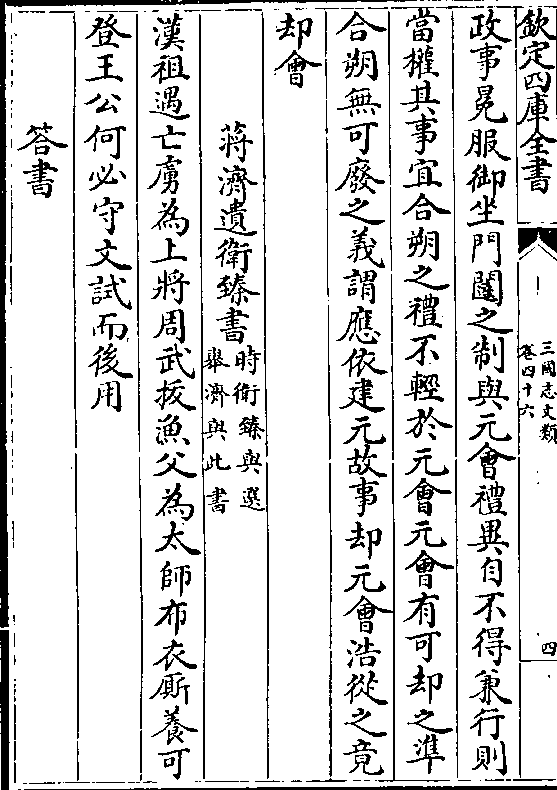 欽定四庫全書
三國志文類
卷四十六
四
政事冕服御坐門闥之制與元會禮異自不得兼行則
當權其事宜合朔之禮不輕於元會元會有可却之準
合朔無可廢之義謂應依建元故事却元會浩從之竟
却會
蔣濟遺衛臻書
時衛臻典選
舉濟與此書
漢祖遇亡虜為上將周武拔漁父為太師布衣厮養可
登王公何必守文試而後用
答書